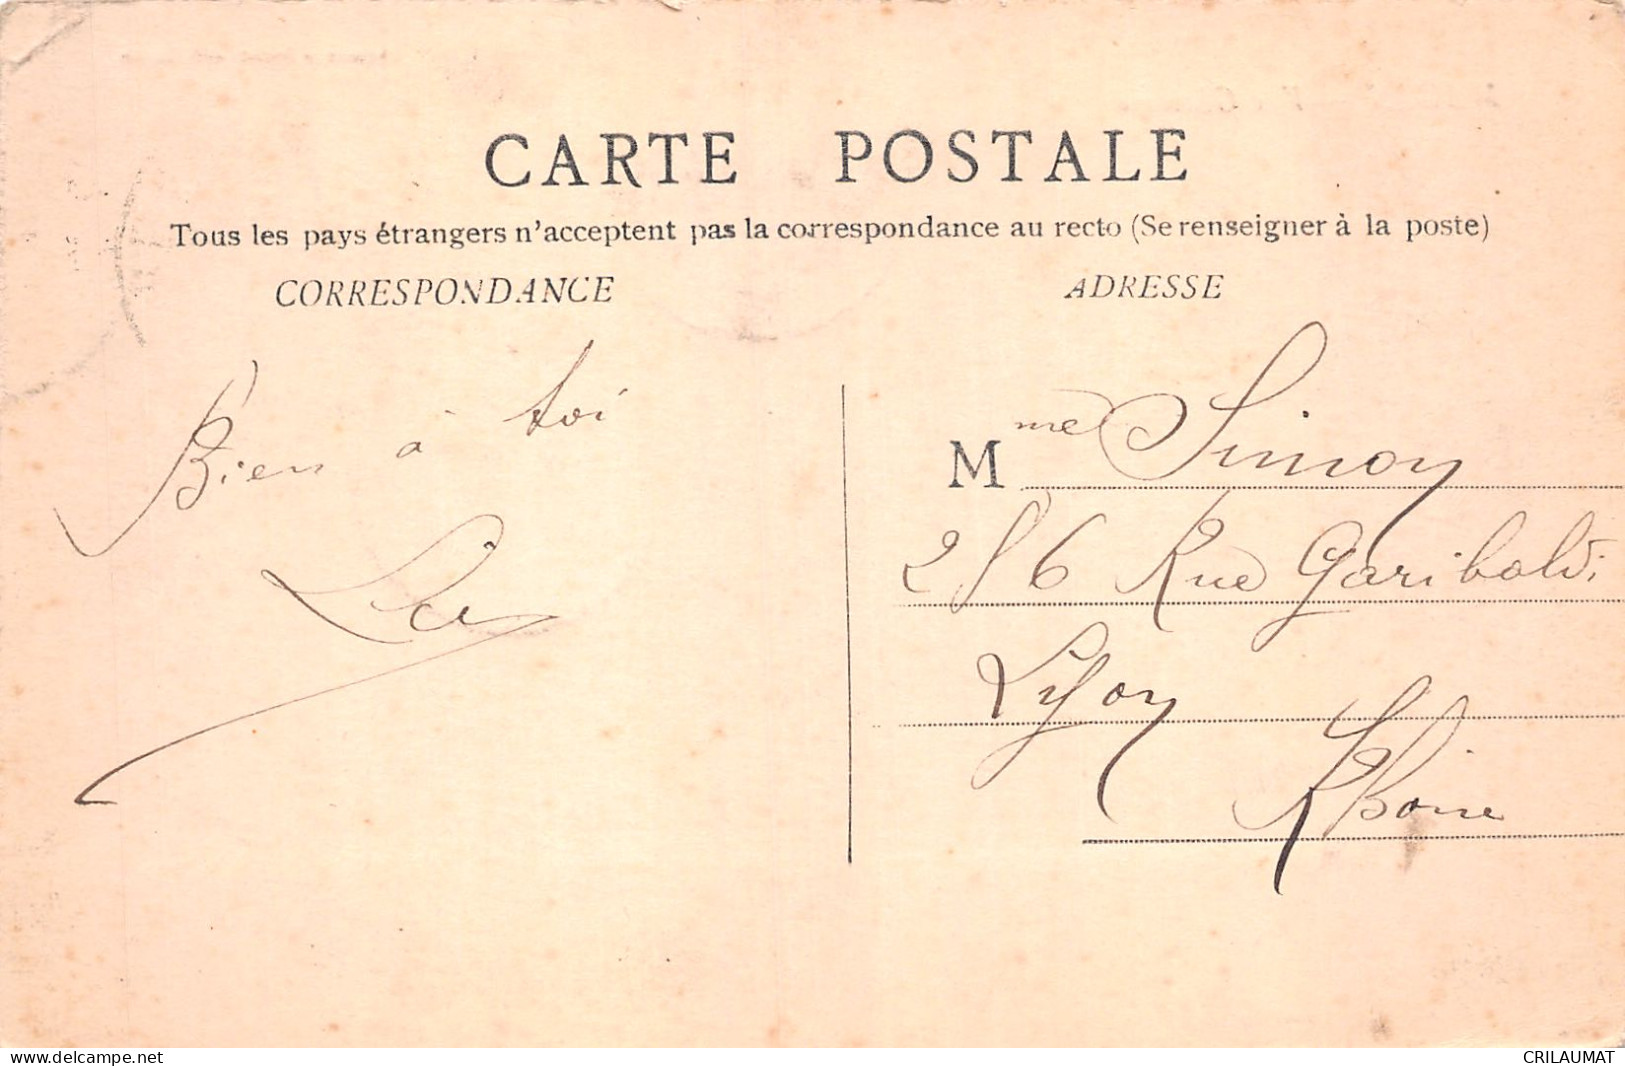 CARTE POSTALE
Tous les pays étrangers n'acceptent pas la correspondance au recto (Se renseigner à la poste)
CORRESPONDANCE
ADRESSE
Bien à toi
Mme Simon
256 Rue Garibaldi
Lyon
Rhône
delcampe.net
CRILAUMAT